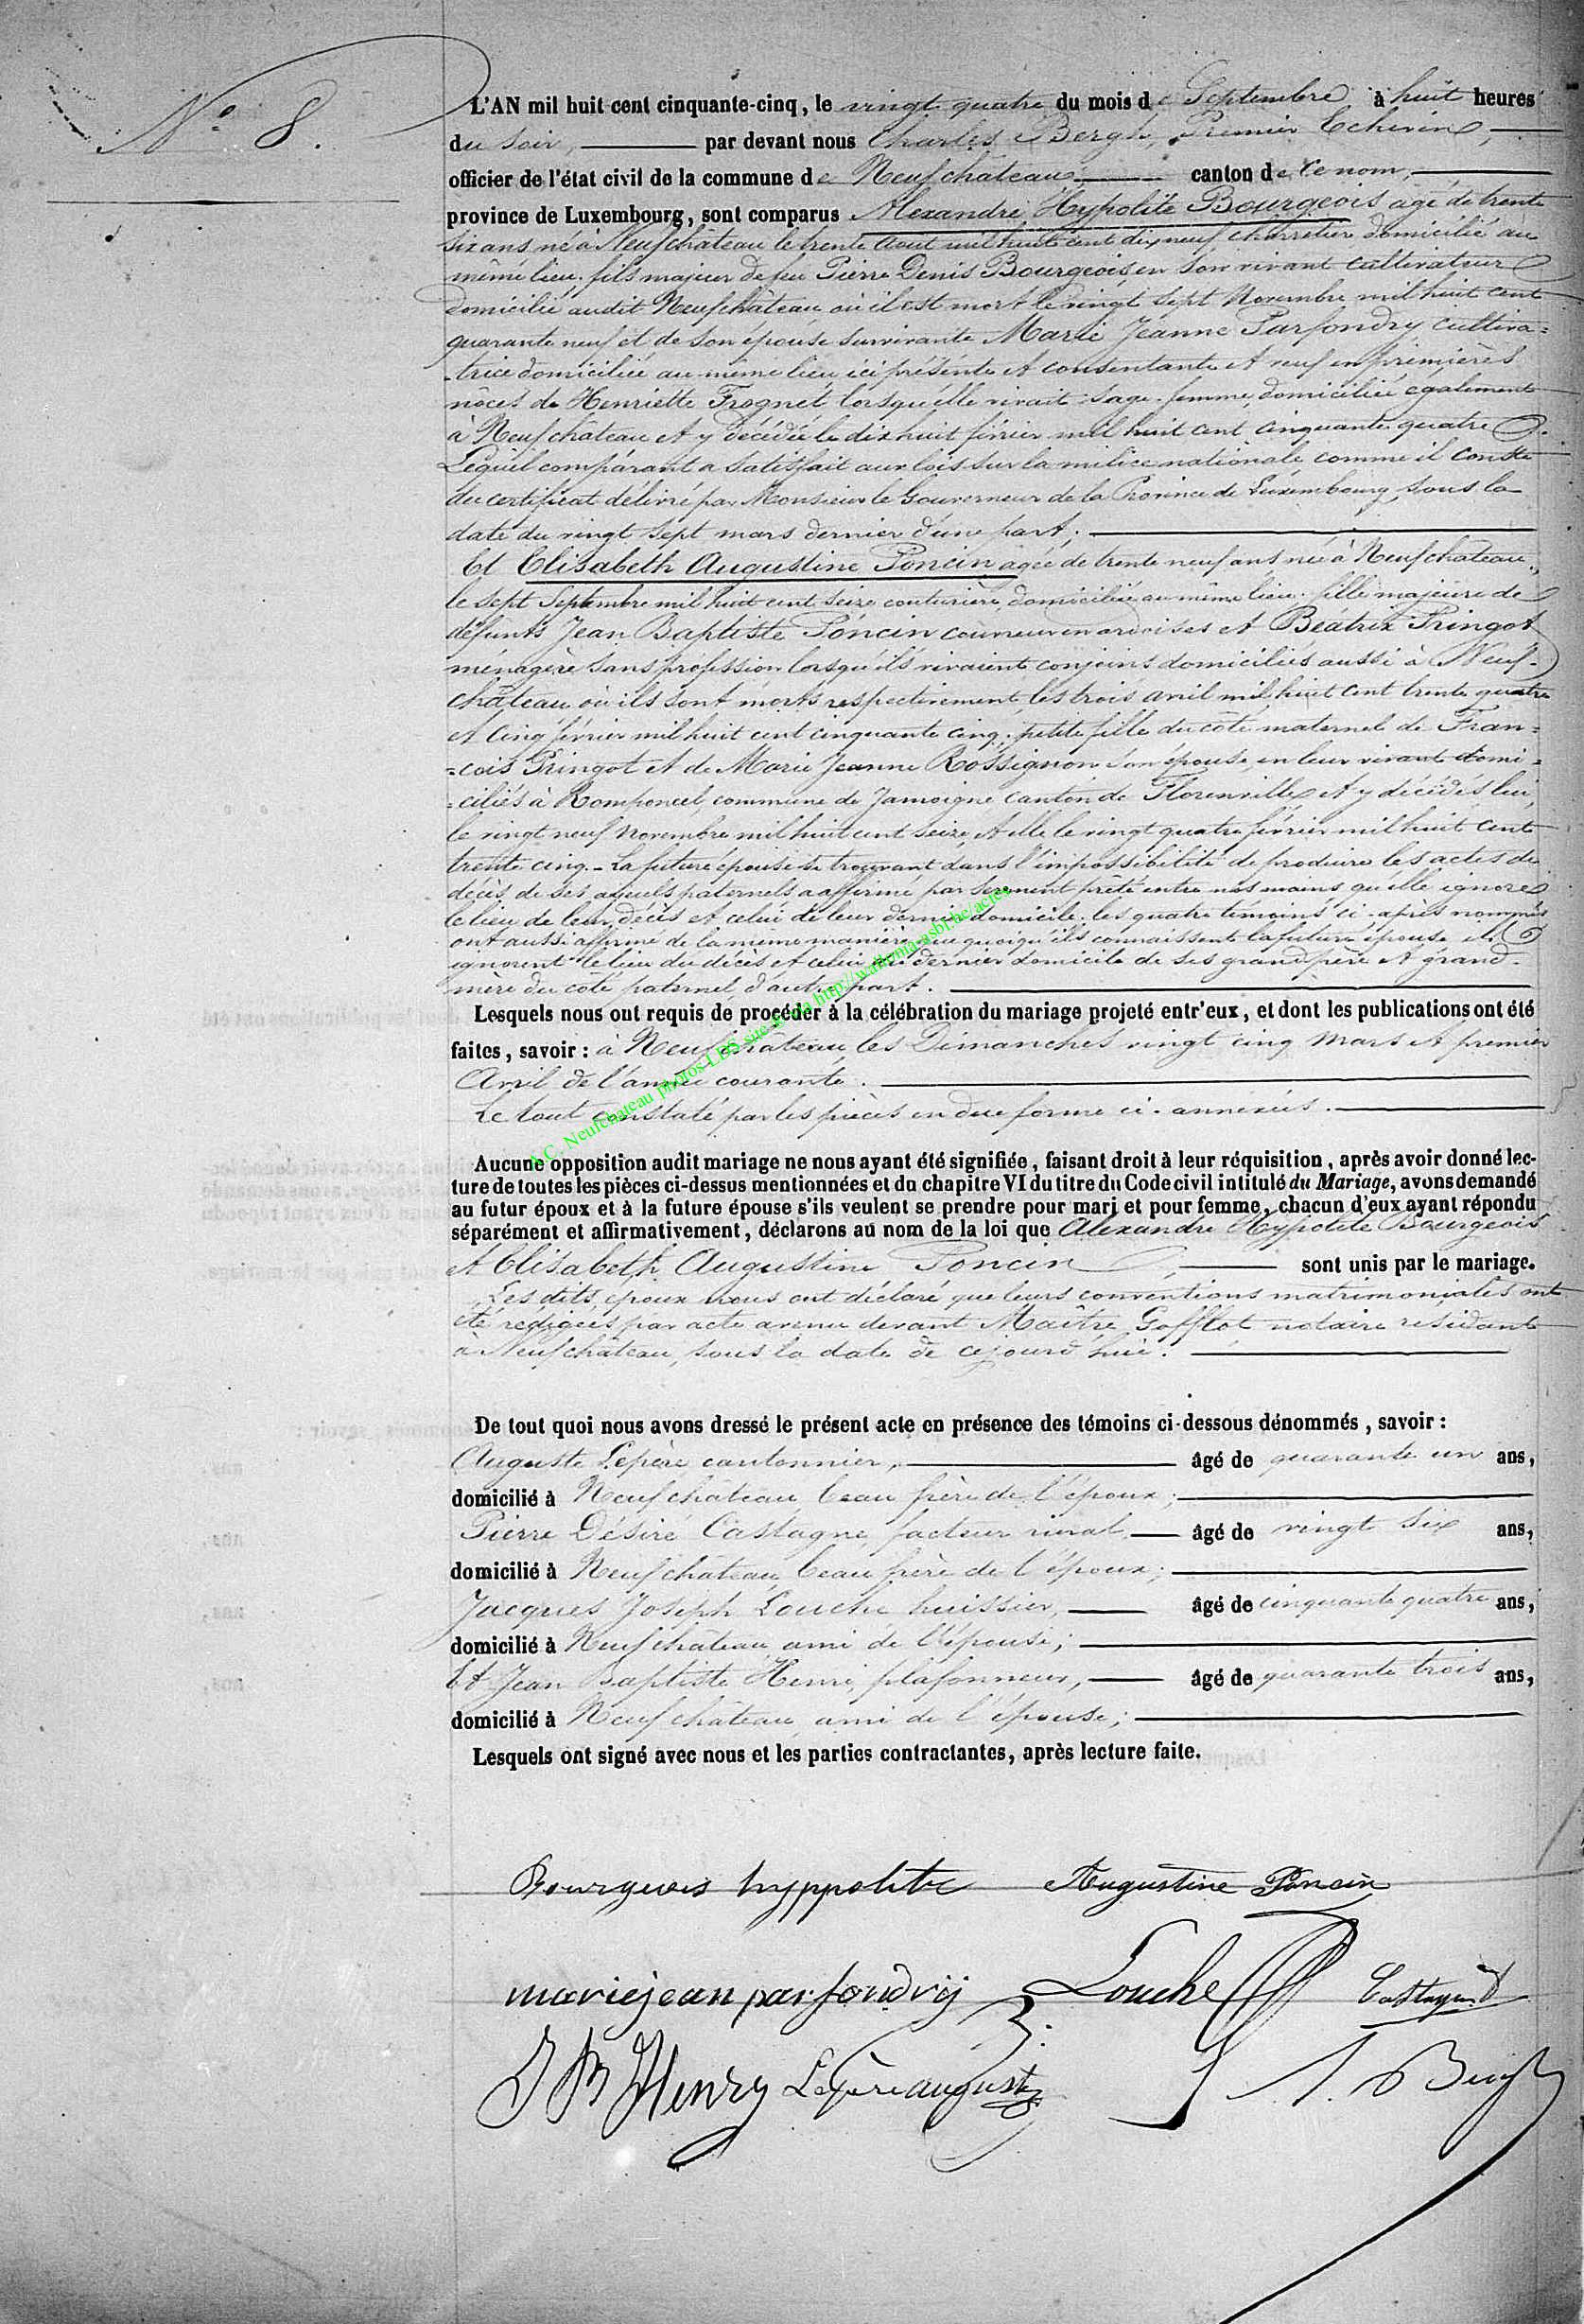 N.o 8.
L'AN mil huit cent cinquante-cinq, le vingt quatre du mois de Septembre à huit heures
du soir, par devant nous Charles Bergh, Premier Echevin,
officier de l'état civil de la commune de Neufchâteau, canton de ce nom,
province de Luxembourg, sont comparus Alexandre Hypolite Bourgeois agé de trente
six ans né à Neufchâteau le trente Août mil huit cent dix neuf, charretier domicilié au
même lieu, fils majeur de feu Pierre Denis Bourgeois, en son vivant cultivateur
domicilié audit Neufchâteau, où il est mort le vingt sept Novembre mil huit cent
quarante neuf et de son épouse survivante Marie Jeanne Parfondry cultiva=
=trice domiciliée au même lieu ici présente et consentante et veuf en premières
nôces de Henriette Frognet lorsqu'elle vivait sage-femme, domiciliée également
à Neufchâteau et y décédée le dix huit février mil huit cent cinquante quatre.
Lequel comparant a satisfait aux lois sur la milice nationale comme il conste
du certificat délivré par Monsieur le Gouverneur de la Province de Luxembourg sous la
date du vingt sept mars dernier d'une part;
Et Elisabeth Augustine Poncin agée de trente neuf ans née à Neufchâteau,
le sept Septembre mil huit cent seize couturière, domiciliée au même lieu, fille majeure de
défunts Jean Baptiste Poncin couvreur en ardoises et Béatrix Pringot
ménagère sans profession lorsqu'ils vivaient conjoins domiciliés aussi à Neuf-
château où ils sont morts respectivement, les trois avril mil huit cent trente quatre
et cinq février mil huit cent cinquante cinq; petite fille du côté maternel de Fran=
=çois Pringot et de Marie Jeanne Rossignon son épouse, en leur vivant domi=
=ciliés à Romponcel, commune de Jamoigne, canton de Florenville et y décédés lui
le vingt neuf Novembre mil huit cent seize, et elle le vingt quatre février mil huit cent
trente cinq. - La future épouse se trouvant dans l'impossibilité de produire les actes de
décès de ses aïeuls paternels a affirmé par serment prêté entre nos mains qu'elle ignore
le lieu de leur décès et celui de leur dernier domicile; les quatre témoins ci-après nommés
ont aussi affirmé de la même manière que quoiqu'ils connaissent la future épouse ils
ignorent le lieu du décès et celui du dernier domicile de ses grand père et grand-
mère du côté paternel d'autre part.
Lesquels nous ont requis de procéder à la célébration du mariage projeté entr'eux, et dont les publications ont été
faites, savoir: à Neufchâteau, les Dimanches vingt cinq Mars et premier
Avril de l'année courante.
Le tout constaté par les pièces en due forme ci-annexées.
A.C. Neufchateau photos LDS sur le site http://wallonia-asbl.be/actes
Aucune opposition audit mariage ne nous ayant été signifiée, faisant droit à leur réquisition, après avoir donné lec-
ture de toutes les pièces ci-dessus mentionnées et du chapitre VI du titre du Code civil intitulé du Mariage, avons demandé
au futur époux et à la future épouse s'ils veulent se prendre pour mari et pour femme, chacun d'eux ayant répondu
séparément et affirmativement, déclarons au nom de la loi que Alexandre Hypolite Bourgeois
et Elisabeth Augustine Poncin, sont unis par le mariage.
Les dits époux nous ont déclaré que leurs conventions matrimoniales ont
été rédigées par acte avenu devant Maître Gofflot notaire résidant
à Neufchâteau, sous la date de cejourd'hui.
De tout quoi nous avons dressé le présent acte en présence des témoins ci-dessous dénommés, savoir:
Auguste Lepère cantonnier, âgé de quarante un ans,
domicilié à Neufchâteau beau frère de l'époux;
Pierre Désiré Castagne, facteur rural, âgé de vingt six ans,
domicilié à Neufchâteau, beau frère de l'époux;
Jacques Joseph Louche huissier, âgé de cinquante quatre ans,
domicilié à Neufchâteau ami de l'épouse;
Et Jean Baptiste Henri, plafonneur, âgé de quarante trois ans,
domicilié à Neufchâteau, ami de l'épouse;
Lesquels ont signé avec nous et les parties contractantes, après lecture faite.
Bourgeois hyppolite Augustine Poncin
mariejean parfondrÿ Louche Castagne
J B Henry Lepère auguste Bergh